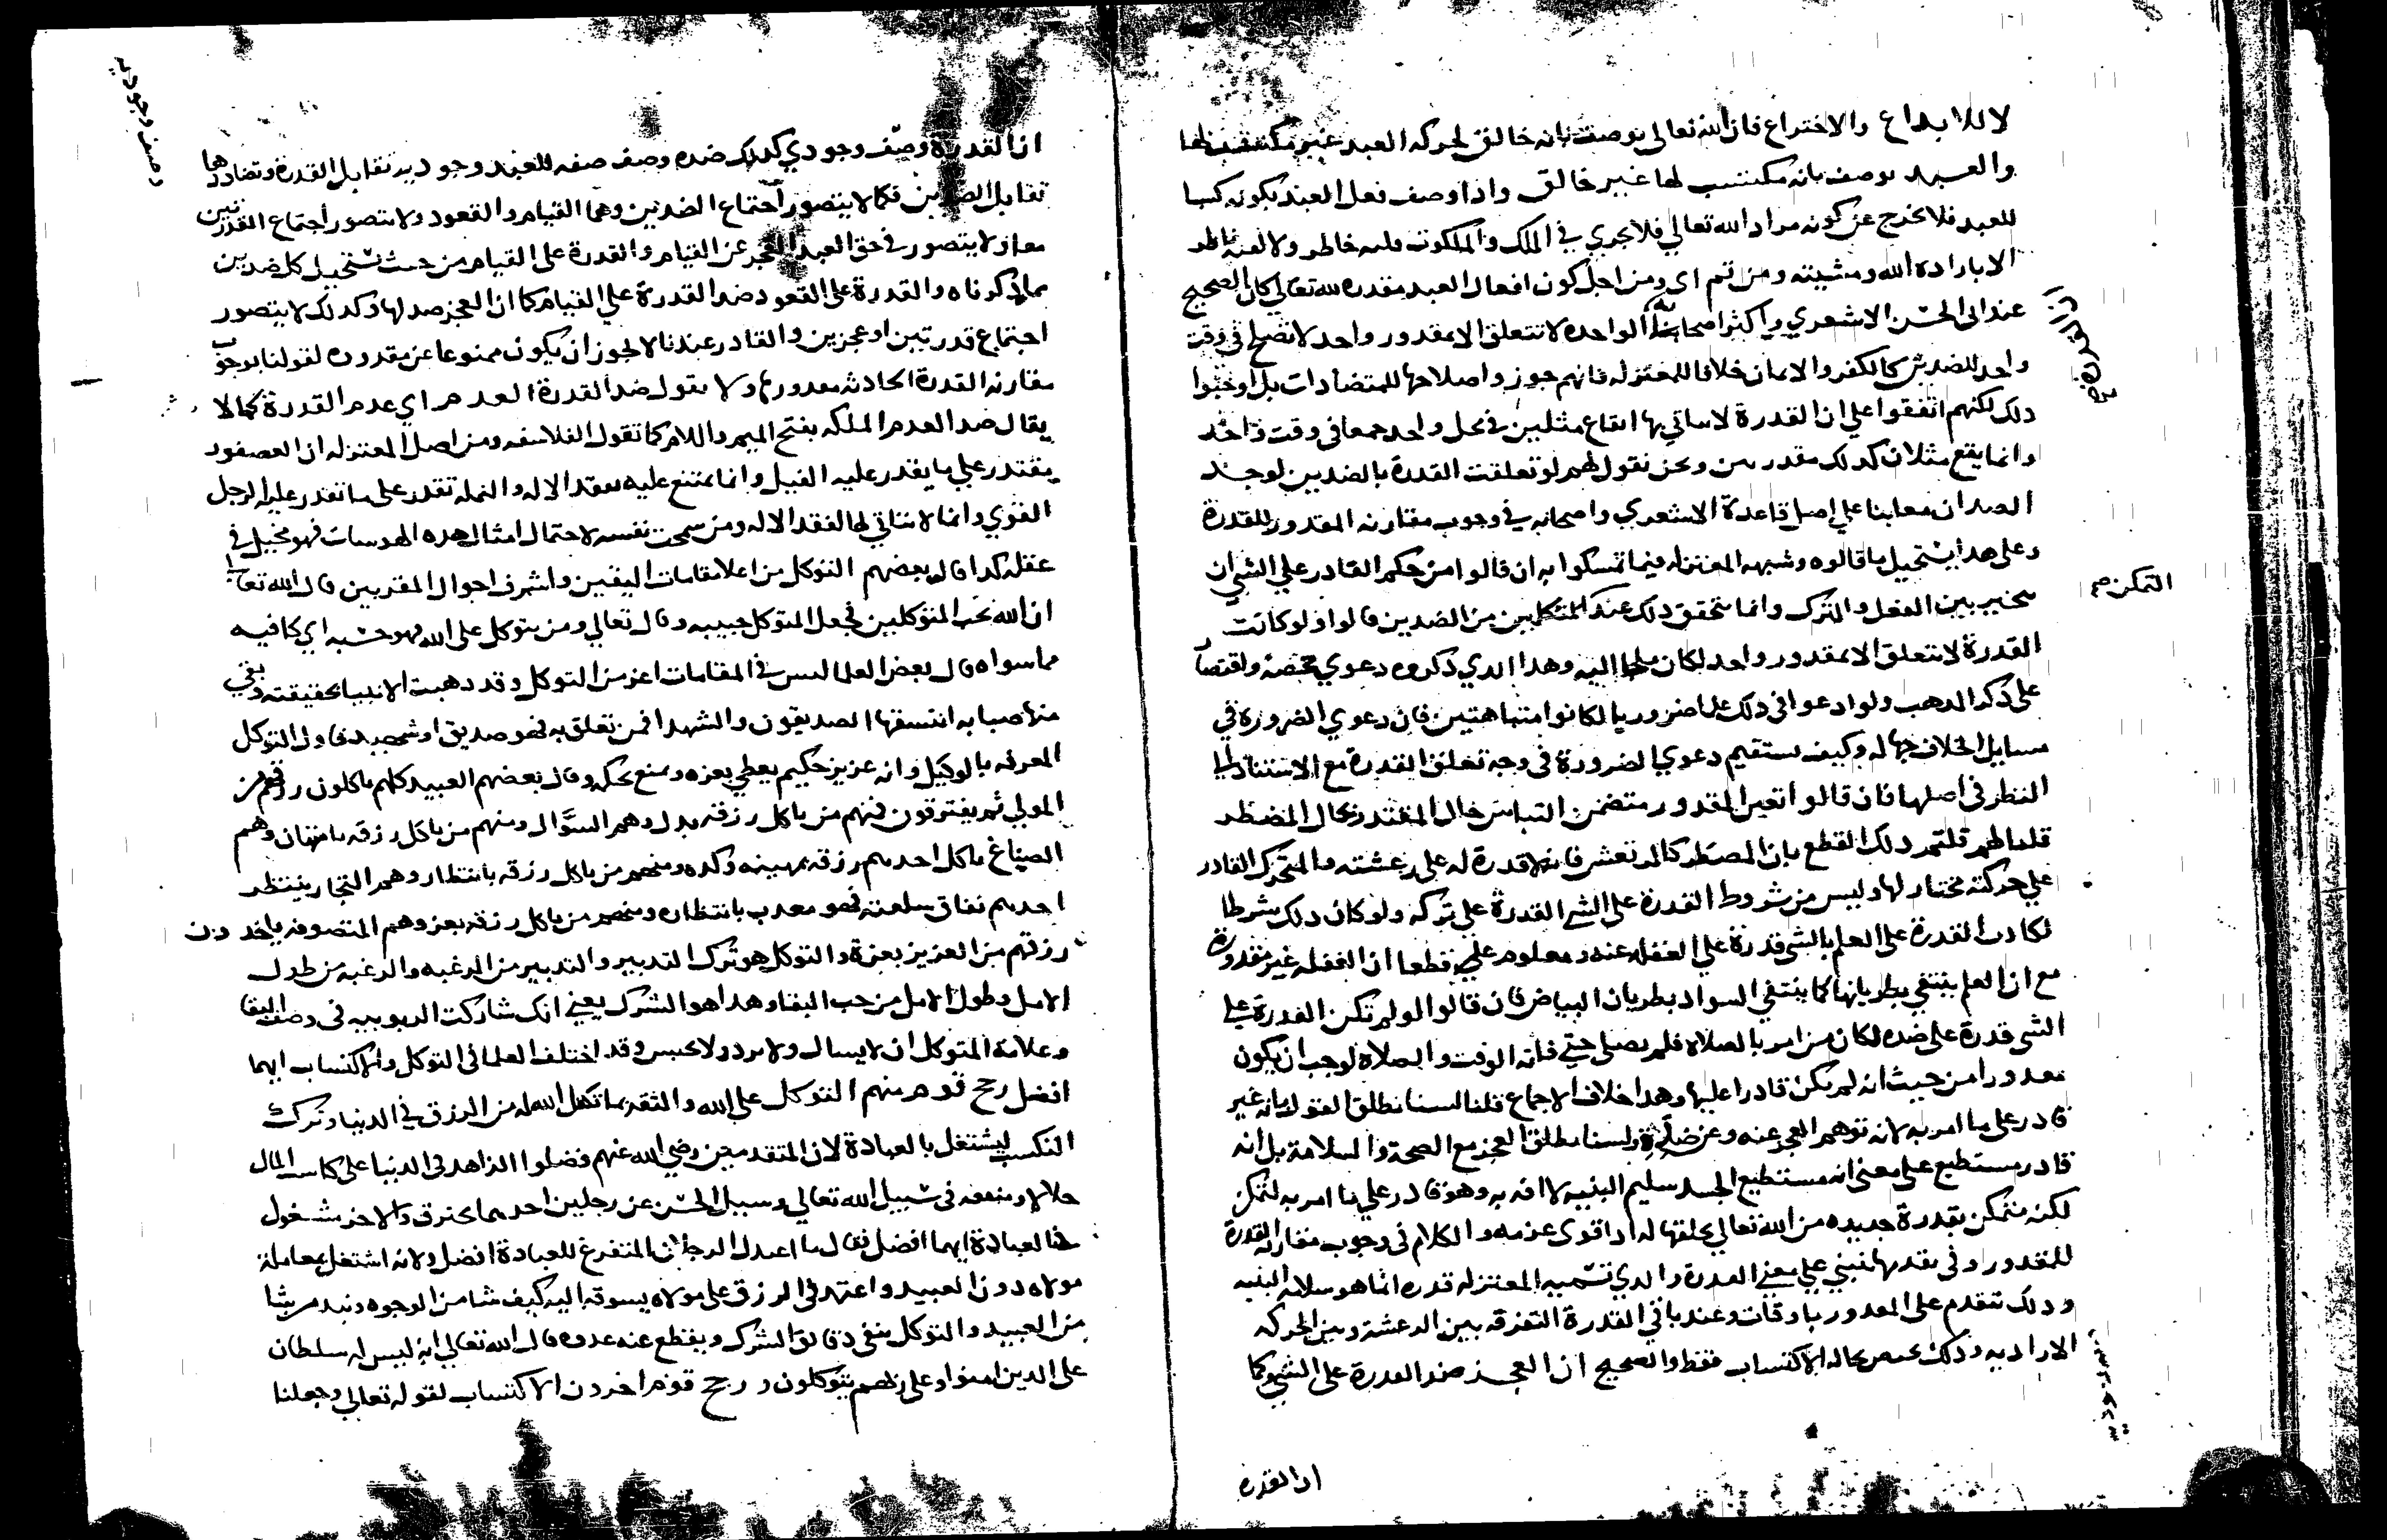 لا للابداع والاختراع فان الله تعالى يوصف بانه خالق لحركه العبد غير مكتسب لها
والعبد يوصف بانه مكتسب لها غير خالق واذا وصف فعل العبد بكونه كسبا
للعبد فلا يخرج عن كونه مراد الله تعالي فلا يجري في الملك والملكوت فلته خاطر ولا لفته ناظر
الا باراده الله ومشيته ومن ثم اي ومن اجل كون افعال العبد مقدره لله تعالي كان الصحيح
عند ابي الحسن الاشعري واكثر اصحابه ان القدرة الواحده لا تتعلق الا بمقدور واحد لا تصلح في وقت
واحد للضدين كالكفر والايمان خلافا للمعتزله فانهم جوزوا صلاحها للمتضادات بل اوجبوا
ذلك لكنهم اتفقوا علي ان القدرة لا ياتي بها ايقاع مثلين في محل واحد جمعا في وقت واحد
وانما يقع مثلان كذلك بقدرتين ونحن نقول لهم لو تعلقت القدرة بالضدين لوجد
الضدان معا بنا علي اصل قاعدة الاشعري واصحابه في وجوب مقارنه المقدور للقدرة
وعلى هذا يستحيل ما قالوه وشبهه المعتزله فيما تمسكوا به ان قالوا من حكم القادر علي الشي ان
يتخير بين الفعل والترك وانما يتحقق ذلك عند التمكن من الضدين قالوا ولو كانت
القدرة لا تتعلق الا بمقدور واحد لكان ملجا اليه وهذا الذي ذكروه دعوي محضه واقتصار
على ذكر المذهب ولو ادعوا في ذلك علما ضروريا لكانوا متباهتين فان دعوي الضروره في
مسايل الخلاف جهاله وكيف يستقيم دعوي الضرورة في وجه تعلق القدرة مع الاستناد الي
النظر في اصلها فان قالوا تعين المقدور متضمن التباس حال المقتدر بحال المضطر
قلنا لهم قلتم ذلك القطع بان المضطر كالمرتعش فانه لا قدرة له على رعشته والمتحرك القادر
علي حركته مختار لها وليس من شروط القدرة على الشي القدرة علي تركه ولو كان ذلك شرطا
لكانت القدرة على العلم بالشي قدرة علي الغفله عنه ومعلوم قطعا ان الغفله غير مقدورة
مع ان العلم ينتفي بطريانها كما ينتفي السواد بطريان البياض فان قالوا لو لم تكن القدرة علي
الشي قدرة على ضده لكان من امر بالصلاه فلم يصلي حتي فاته الوقت والصلاة لوجب ان يكون
معذورا من حيث انه لم يكن قادرا عليها وهذا خلاف الاجماع قلنا لسنا نطلق القول بانه غير
قادر على ما امر به لانه توهم العجز عنه وعن ضده ولسنا نطلق العجز مع الصحة والسلامة بل انه
قادر مستطيع على معنى انه مستطيع الجسد سليم البنيه لا افه به وهو قادر علي ما امر به لتمكن
لكنه متمكن بقدرة جديده من الله تعالي يخلقها له اذا قوي عزمه والكلام في وجوب مقارنه القدرة
للمقدور وفي تقدمها ينبني علي معني القدرة والذي تسميه المعتزله قدره انما هو سلامه البنيه
وذلك تتقدم على المقدور باوقات وعندنا في القدرة التفرقه بين الرعشة وبين الحركه
الاراديه وذلك يختص بحاله الاكتساب فقط والصحيح ان العجز ضد القدرة على الشي كما
ان القدره
التمكن م
ان القدرة وصف وجودي كذلك ضده وصف صفه للعبد وجوديه تقابل القدرة وتضادها
تقابل الضدين فكما لا يتصور اجتماع الضدين وهما القيام والقعود ولا يتصور اجتماع القدرتين
معا ولا يتصور في حق العبد العجز عن القيام والقدرة على القيام من حيث تستحيل كل ضدين
مما ذكرناه والقدرة على القعود ضد القدرة علي القيام كما ان العجز ضد لها وكذلك لا يتصور
اجتماع قدرتين او عجزين والقادر عندنا لا يجوز ان يكون ممنوعا عن مقدوره لقولنا بوجوب
مقارنه القدرة الحادثه مقدورها ولا يقول ضد القدرة العدم اي عدم القدرة كما لا
يقال ضد العدم الملكه بفتح الميم واللام كما تقول الفلاسفه ومن اصل المعتزله ان العصفور
يقتدر علي ما يقدر عليه الفيل وانما يمتنع عليه لفقد الاله والنمله تقدر على ما تقدر عليه الرجل
القوي وانما لا يتاتي لها لفقد الاله ومن سمحت نفسه لاحتمال امثال هذه الهوسات فهو مخيل في
عقله كذا قال بعضهم التوكل من اعلا مقامات اليقين واشرف احوال المقربين قال الله تعالي
ان الله يحب المتوكلين فجعل المتوكل حبيبه وقال تعالي ومن يتوكل على الله فهو حسبه اي كافيه
مما سواه قال بعض العلما ليس في المقامات اعز من التوكل وقد ذهبت الانبيا بحقيقته وبقي
منه صبابه انتسقها الصديقون والشهدا فمن تعلق به فهو صديق او شهيد فاول التوكل
المعرفه بالوكيل وانه عزيز حكيم يعطي بعزه ويمنع بحكمه وقال بعضهم العبيد كلهم ياكلون رزقهم من
المولي ثم يفترقون فمنهم من ياكل رزقه بذل وهم السؤال ومنهم من ياكل رزقه بامتهان وهم
الصياغ ياكل احدهم رزقه بمهينه وكده ومنهم من ياكل رزقه بانتظار وهم التجار ينتظر
احدهم نفاق سلعته فهو معذب بانتظاره ومنهم من ياكل رزقه بعز وهم المتصوفه ياخذون
رزقهم من العزيز بعزة والتوكل هو ترك التدبير والتدبير من الرغبه والرغبه من طول
الامل وطول الامل من حب البقا وهذا هو الشرك يعني انك شاركت الربوبيه في وصف البقا
وعلامة المتوكل ان لا يسال ولا يرد ولا يحبس وقد اختلف العلما في التوكل والاكتساب ايهما
افضل رجح قوم منهم التوكل على الله والثقه بما تكفل الله له من الرزق في الدنيا وترك
التكسب ليشتغل بالعبادة لان المتقدمين رضي الله عنهم فضلوا الزاهد في الدنيا على كاسب المال
حلالا ومنفعه في سبيل الله تعالي وسئل الحسن عن رجلين احدهما يحترف والاخر مشغول
بالعبادة ايهما افضل فقال ما اعدل الرجلان المتفرغ للعبادة افضل ولانه اشتغل بمعاملة
مولاه دون العبيد واعتمد في الرزق على مولاه يسوقه اليه كيف شا من الوجوه وبيد من شا
من العبيد والتوكل ينفي دقائق الشرك ويقطع عنه عدوه قال الله تعالي انه ليس له سلطان
على الذين امنوا وعلى ربهم يتوكلون ورجح قوم اخرون الاكتساب لقوله تعالي وجعلنا
وصف وجوديه